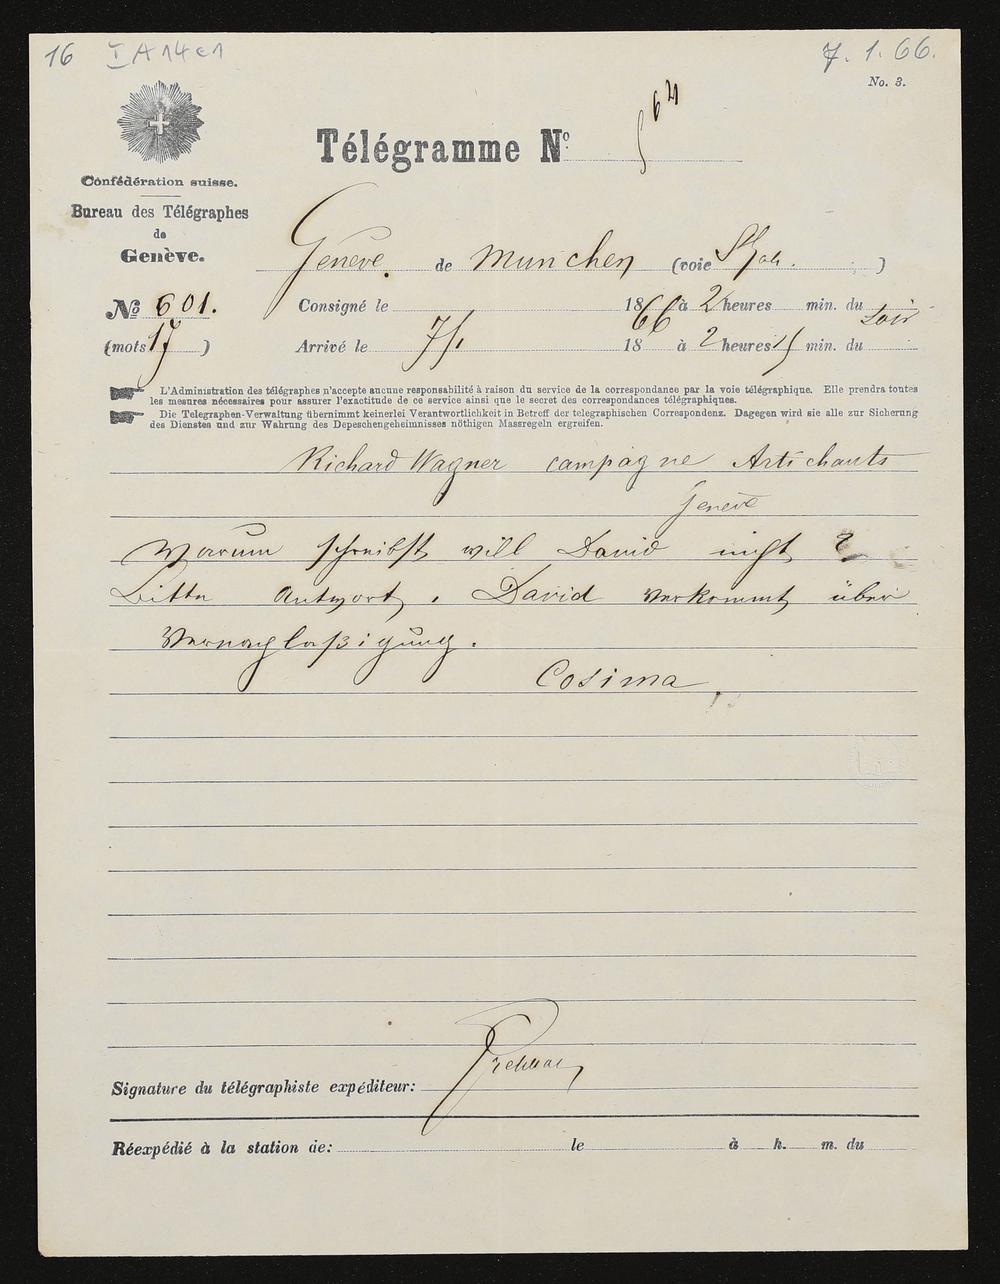 16 I A 14 c 1
7. 1. 66.
No. 3.
564
Télégramme No.
Confédération suisse.
Bureau des Télégraphes
de
Genève.
Genève. de München (voie )
No 601. Consigné le 1866 à 2 heures min. du soir
(mots 17 ) Arrivé le 7/1 18 à 2 heures 15 min. du
L'Administration des télégraphes n'accepte aucune responsabilité à raison du service de la correspondance par la voie télégraphique. Elle prendra toutes
les mesures nécessaires pour assurer l'exactitude de ce service ainsi que le secret des correspondances télégraphiques.
Die Telegraphen-Verwaltung übernimmt keinerlei Verantwortlichkeit in Betreff der telegraphischen Correspondenz. Dagegen wird sie alle zur Sicherung
des Dienstes und zur Wahrung des Depeschengeheimnisses nöthigen Massregeln ergreifen.
Richard Wagner campagne Artichauts
Genève
Warum schreibst will David nicht ?
Bitte Antwort. David verkommt über
Vernachlaßigung.
Cosima
Signature du télégraphiste expéditeur:
Réexpédié à la station de: le à h. m. du